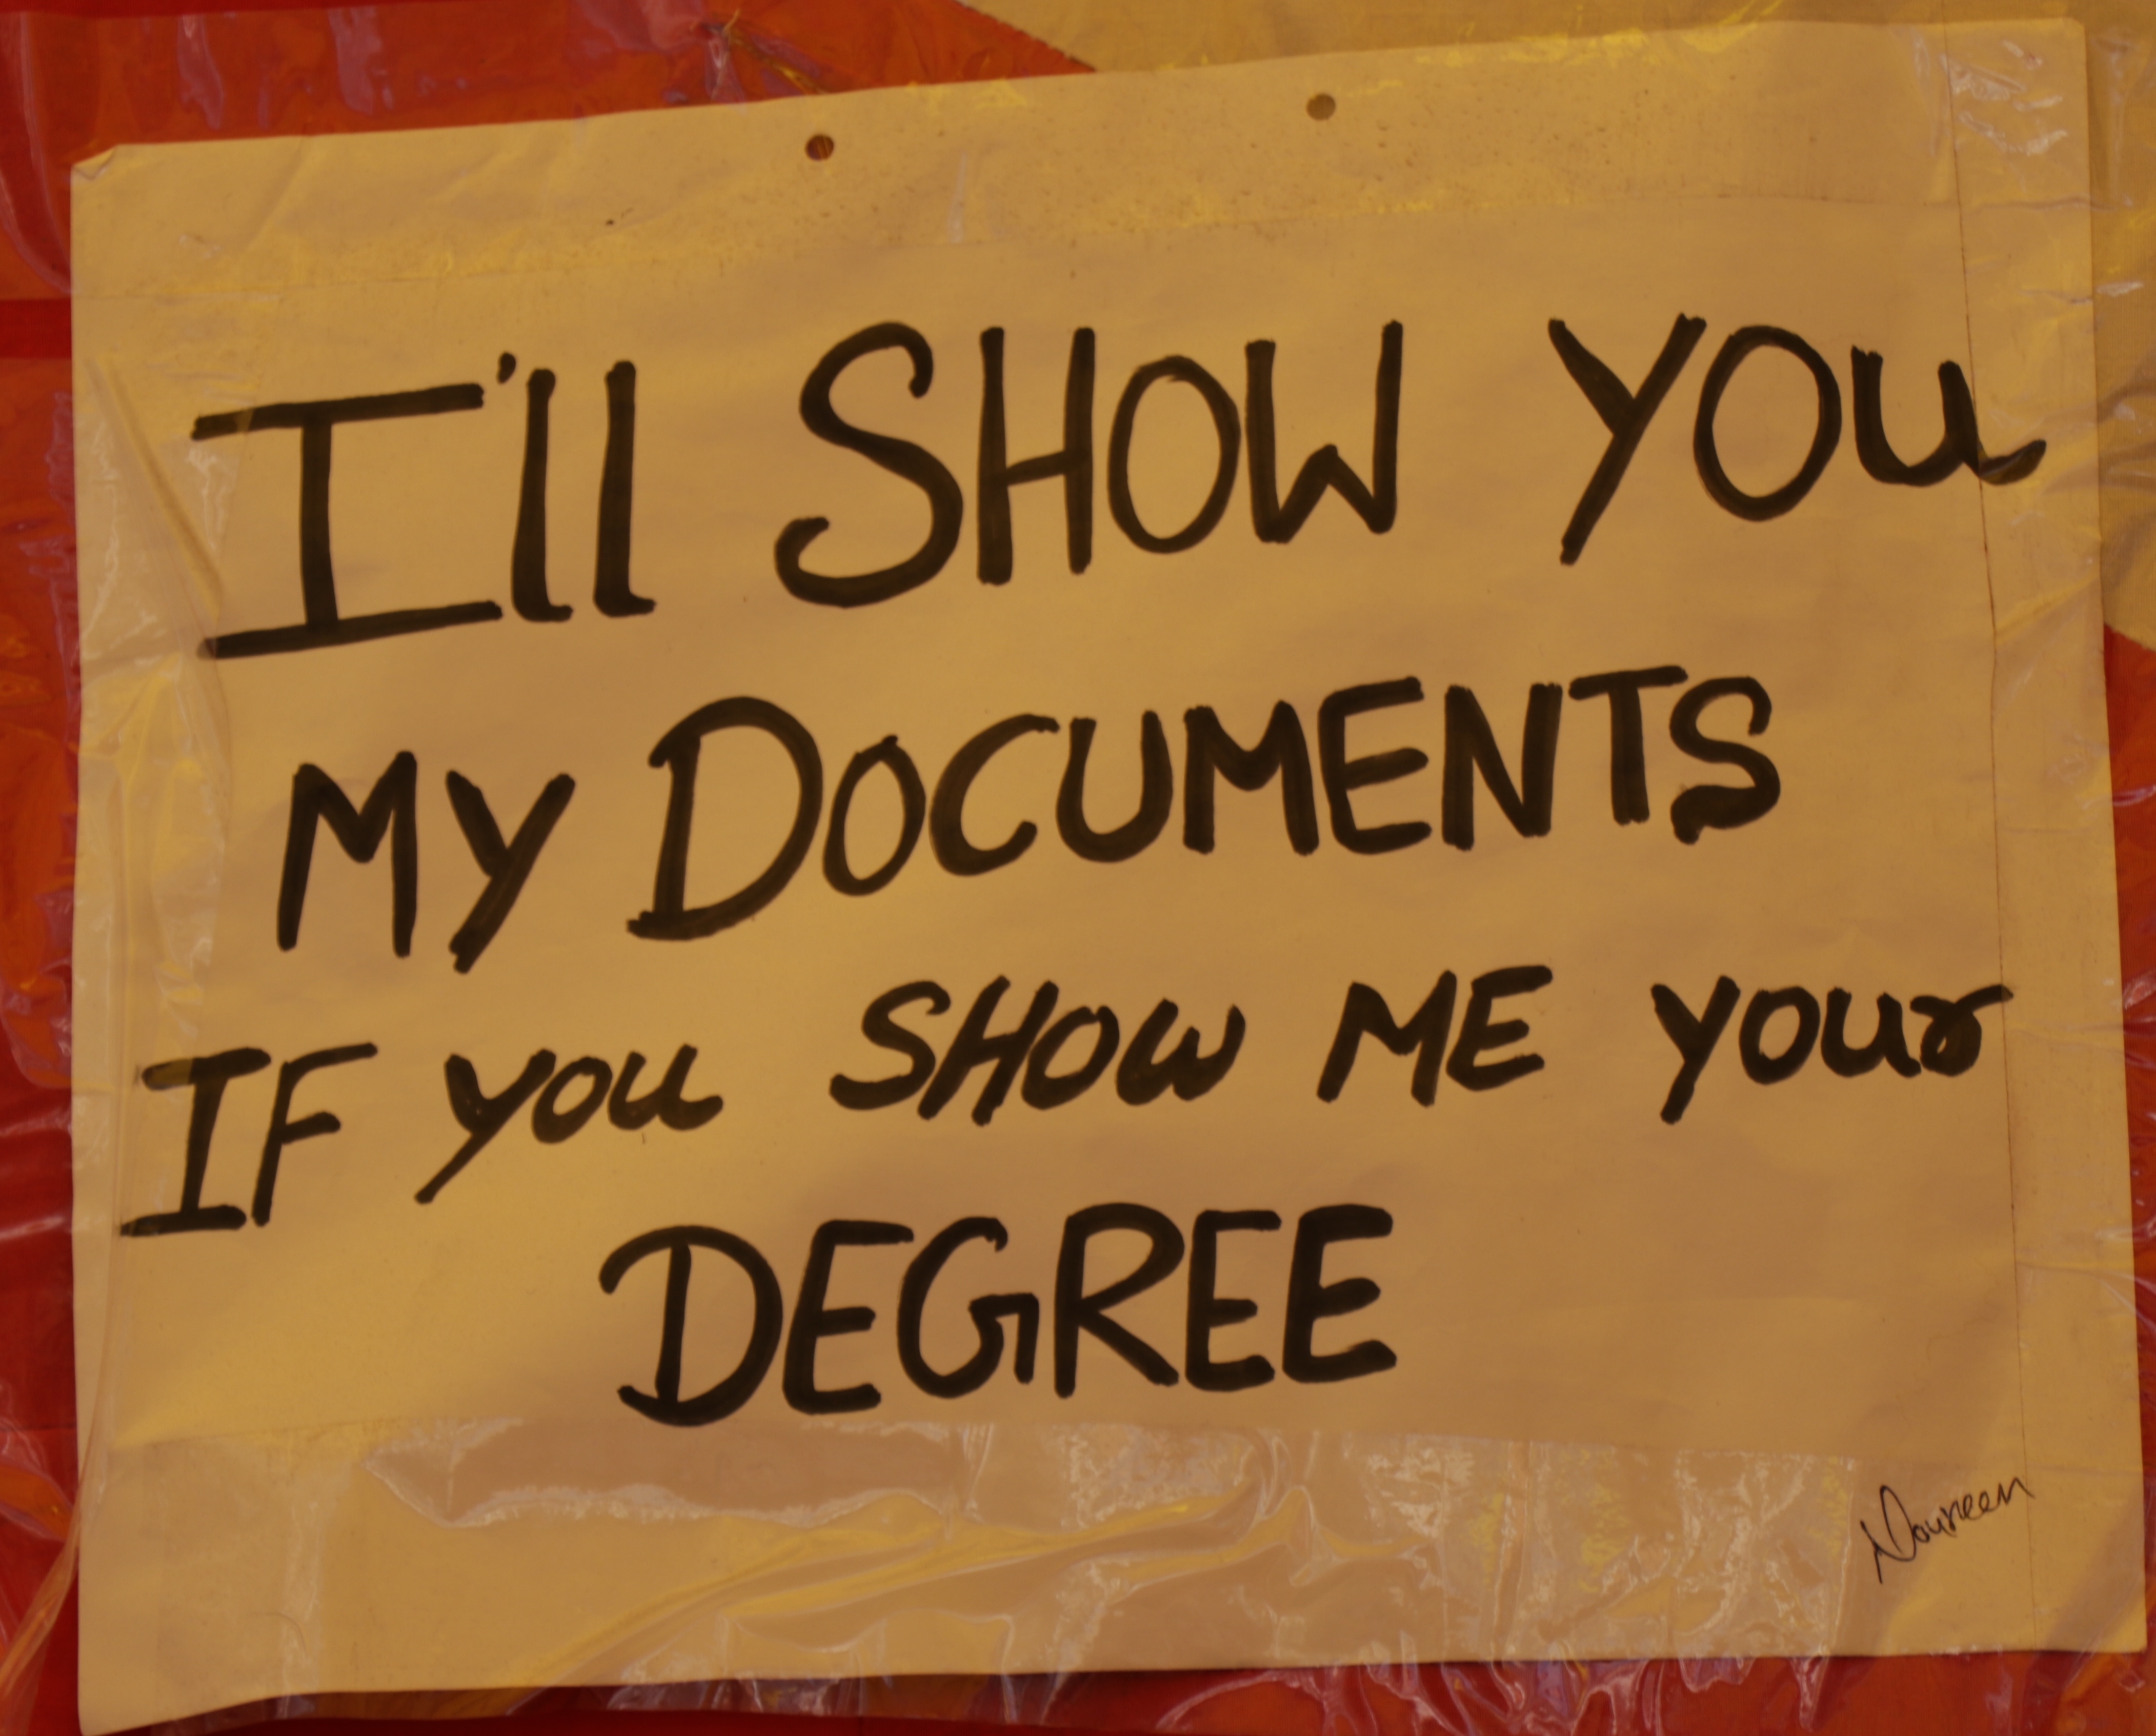 I'll SHOW YOU
MY DOCUMENTS
IF you SHOW ME your
DEGREE
Noureen